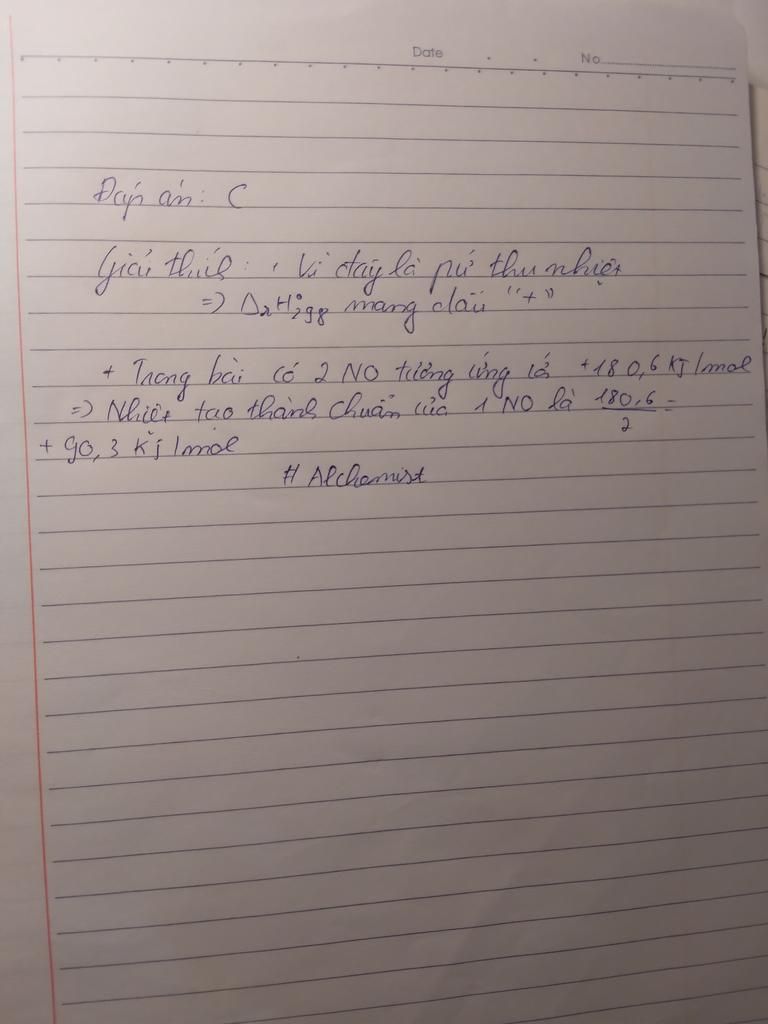 Date . . No
Đáp án: C
Giải thích: · Vì đây là pứ thu nhiệt
=> ΔrH°298 mang dấu "+"
+ Trong bài có 2 NO tương ứng là +180,6 KJ/mol
=> Nhiệt tạo thành chuẩn của 1 NO là 180,6/2 =
+ 90,3 KJ/mol
# Alchemist